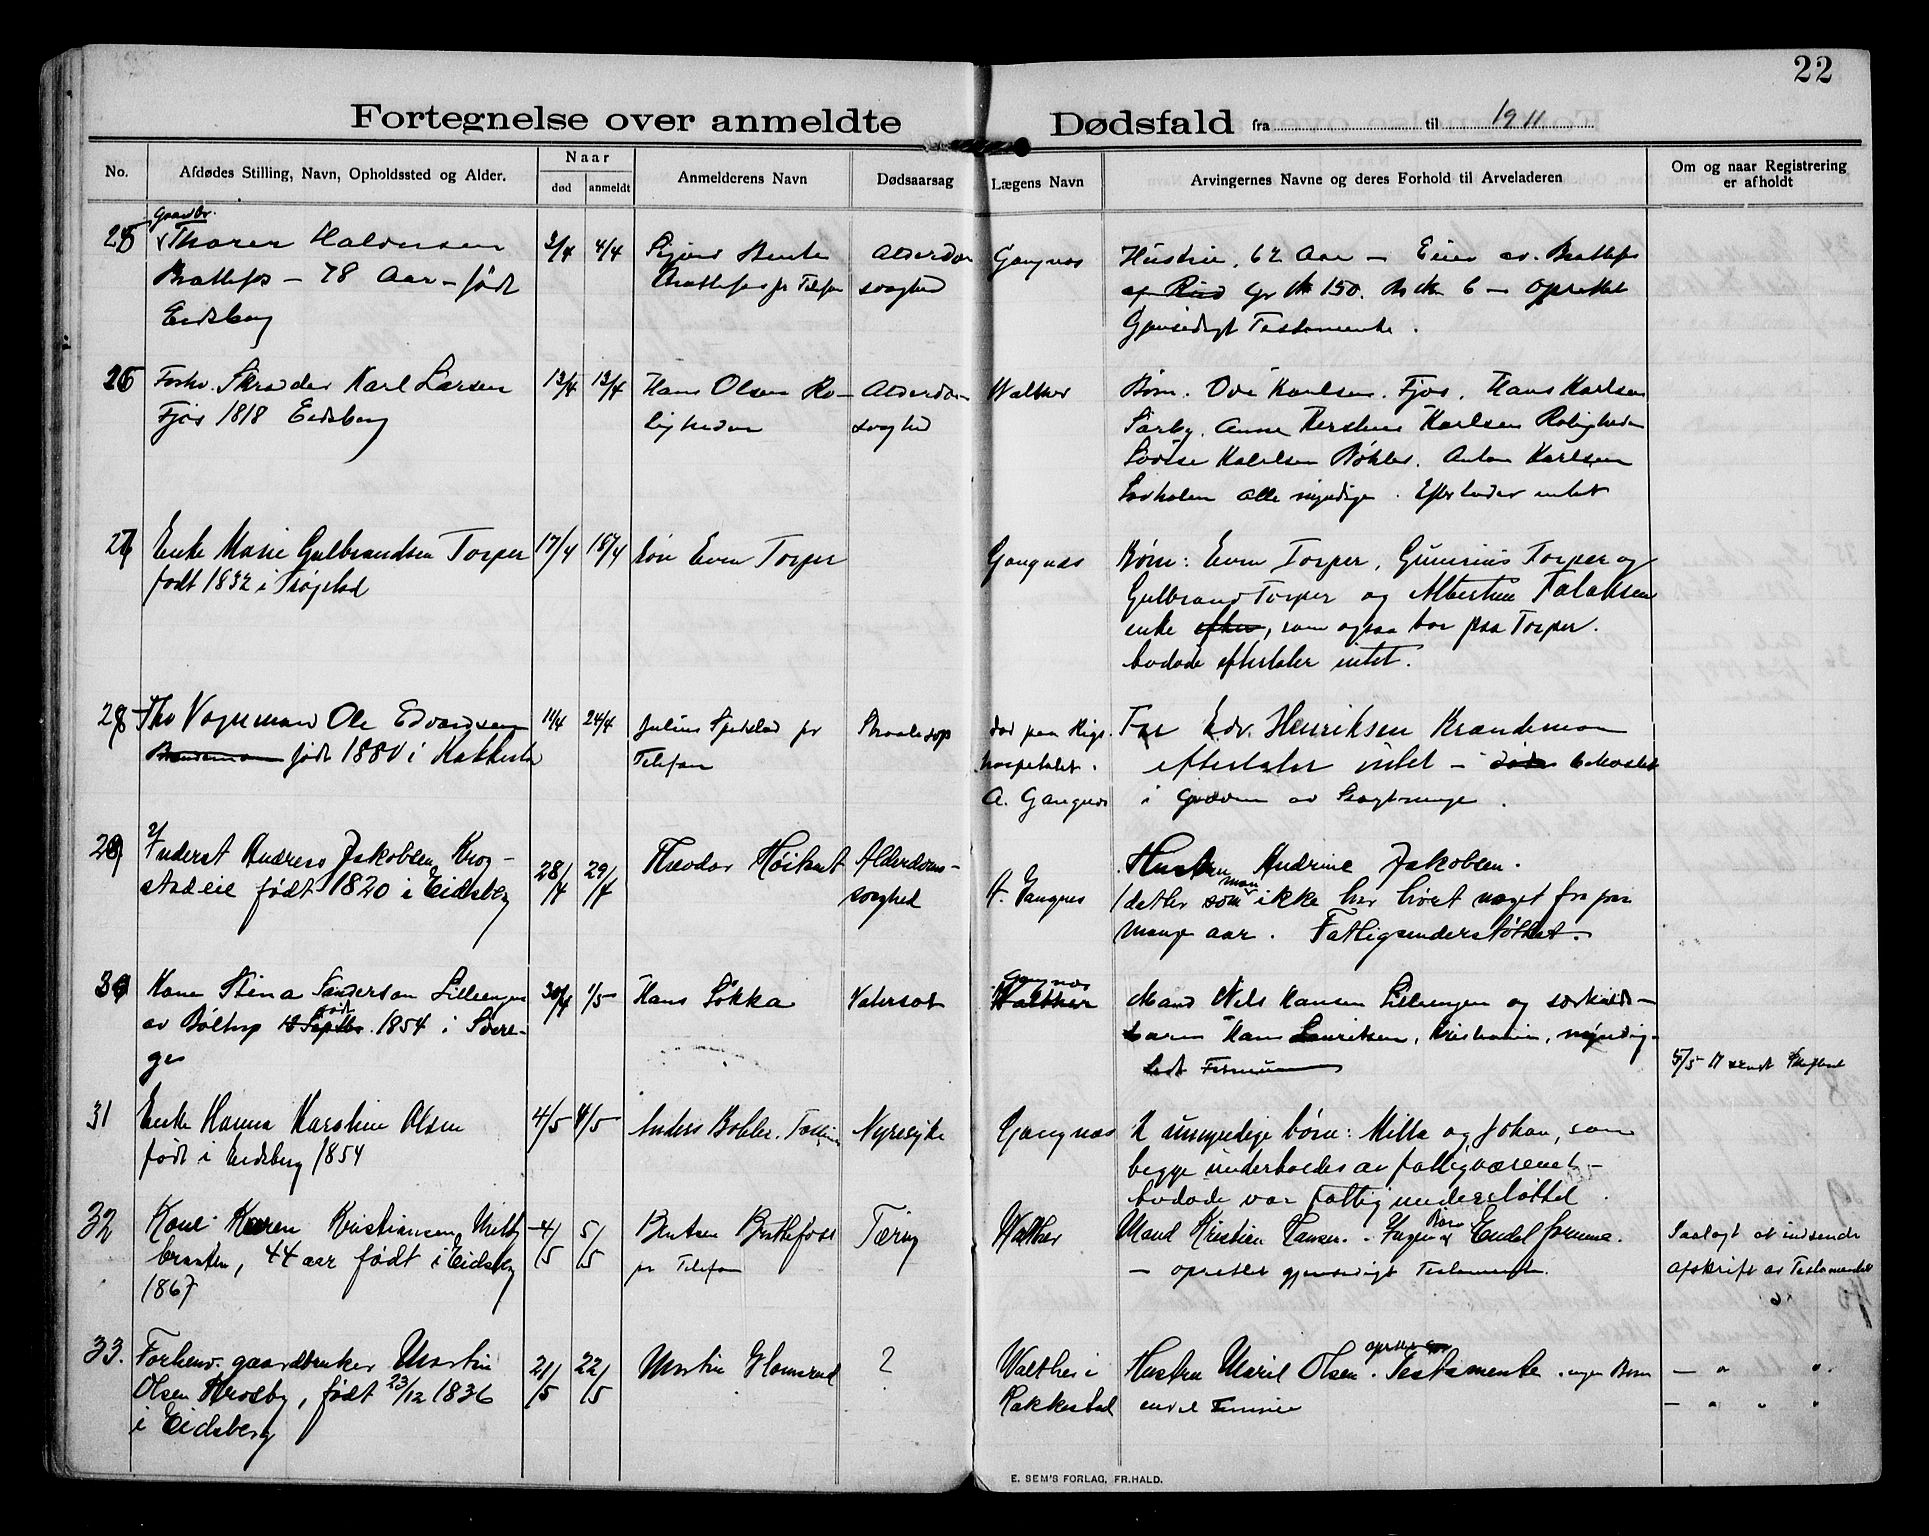 22
Fortegnelse over anmeldte Dødsfald fra til 1911
No.
Afdødes Stilling, Navn, Opholdssted og Alder.
Naar
død
anmeldt
Anmelderens Navn
Dødsaarsag
Lægens Navn
Arvingernes Navne og deres Forhold til Arveladeren
Om og naar Registrering
er afholdt
25
Gaardbr.
Thorer Halvorsen
Brattefos – 78 Aar – født
Eidsberg
3/4
4/4
Bente
Brattefos pr Telefon
Alderdom
svaghed
Gangnæs
Hustru, 62 Aar – Eier av Brattefos
150. 6 – oprettet
Gjensidigt Testamente.
26
Forhv. Skrædder Karl Larsen
Fjøs 1818 Eidsberg
13/4
13/4
Hans Olsen Ro-
ligheden
Alderdom-
svaghed
Walther
Børn. Ole Karlsen. Fjøs. Hans Karlsen
Sarby. Anne Kerstine Karlsen Roligheden
Lovise Karlsen Bøhler. Anton Karlsen
alle myndige. Efterlader intet
27
Enke Marie Gulbrandsen Torper
født 1832 i Trøgstad
17/4
18/4
Søn Even Torper
Gangnæs
Børn: Even Torper, Gunerius Torper og
Gulbrand Torper og Albertine Falaksen
enke efter, som ogsaa bor paa Torper.
Avdøde efterlater intet.
28
Fhv Vognmand Ole Edvardsen
Brandemoen født 1880 i Rakkestad
11/4
24/4
Julius Spetalad pr
Telefon
død paa Rigs
hospitalet.
A. Gangnæs
Far Edv. Henriksen Brandemoen
efterlater intet – bekostet
i Graven av
29
Inderst Andreas Jakobsen Krog-
stadeie født 1820 i Eidsberg
28/4
29/4
Theodor Høitomt
Alderdoms-
svaghed
A. Gangnes
Hustru Andrine Jakobsen.
/datter som man ikke har hørt noget fra paa
mange aar. Fattigsunderstøttet.
30
Kone Stina Sanderson Lilleengen
av Bøltorp 12 Septbr. født 1854 i Sver-
ge
30/4
1/5
Hans Løkka
Vatersot
Gangnæs
Walther
Mand Nils Hansen Lilleengen og særkulds-
barn Hans Lauritsen, Kristiania, myndig.
5/5 11 sendt
31
Enke Hanna Karoline Olsen
født i Eidsberg 1854
4/5
4/5
Anders Bøhler.
Nyresyke
Gangnæs
2 umyndige børn: Milla og Johan, som
begge underholdes av fattigvæsenet –
Avdøde var fattigunderstøttet.
32
Kone Karen Kristiansen Melby
braaten, 44 aar født i Eidsberg
1867
4/5
5/5
Bentsen Brattefoss
pr Telefon
Tæring
Walther
Mand Kristian Hansen. Ingen Børn Endel formue.
– oprettet gjensidigt Testamente.
Paalagt at indsende
afskrift av Testamentet
33.
Forhenv. gaardbruker Martin
Olsen Krosby, født 23/12 1836
i Eidsberg
21/5
22/5
Martin Homsrud
?
Walther i
Rakkestad
Hustru Maril Olsen. oprettet Testamente. ingen Børn
endel Formue
– " ".
– " " "
E. SEM'S FORLAG, FR.HALD.